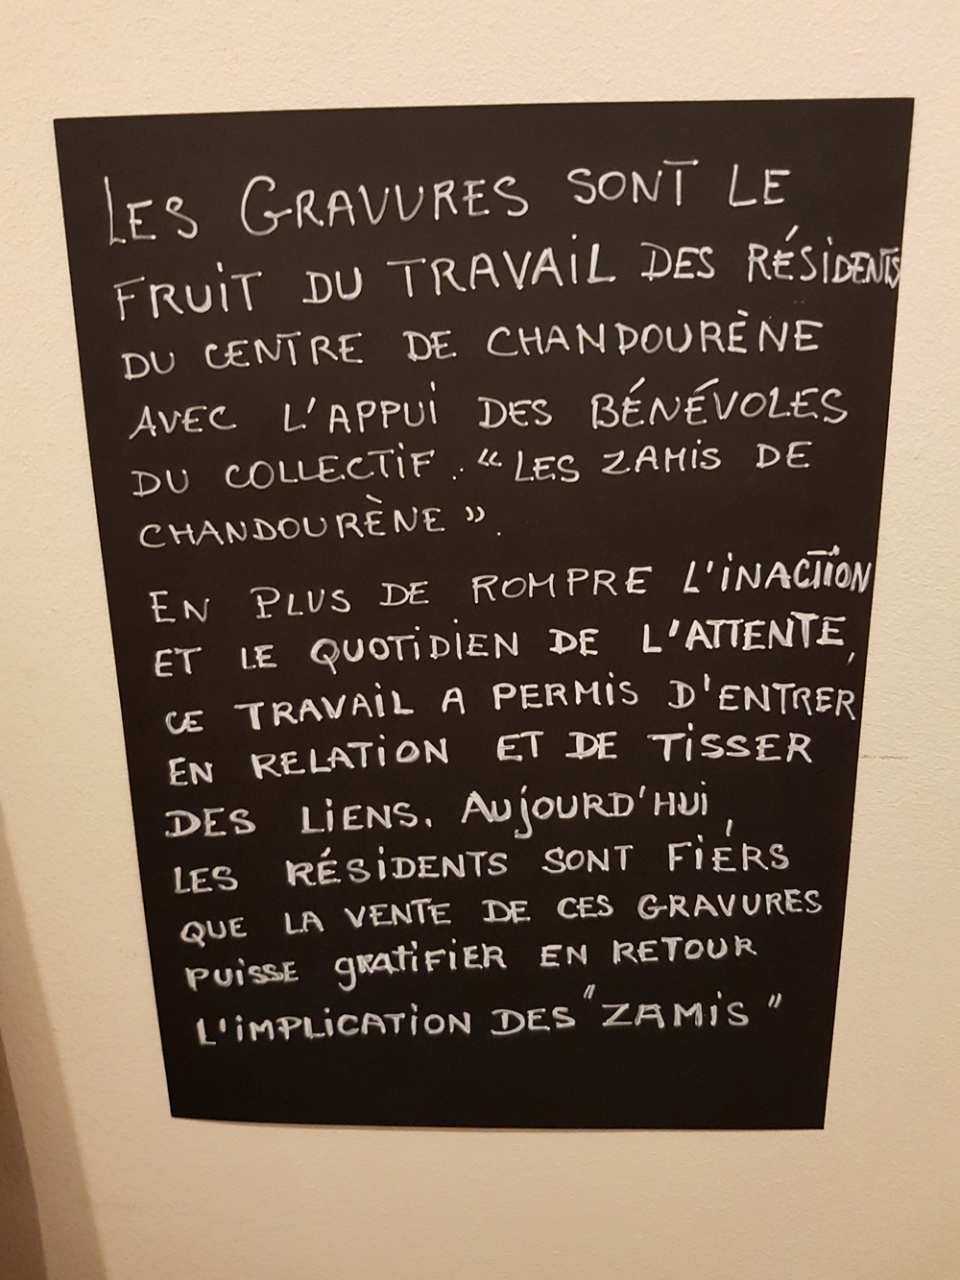 LES GRAVURES SONT LE
FRUIT DU TRAVAIL DES RÉSIDENTS
DU CENTRE DE CHANDOURÈNE
AVEC L'APPUI DES BÉNÉVOLES
DU COLLECTIF. "LES ZAMIS DE
CHANDOURÈNE".
EN PLUS DE ROMPRE L'INACTION
ET LE QUOTIDIEN DE L'ATTENTE,
CE TRAVAIL A PERMIS D'ENTRER
EN RELATION ET DE TISSER
DES LIENS. AUJOURD'HUI,
LES RÉSIDENTS SONT FIERS
QUE LA VENTE DE CES GRAVURES
PUISSE GRATIFIER EN RETOUR
L'IMPLICATION DES "ZAMIS"